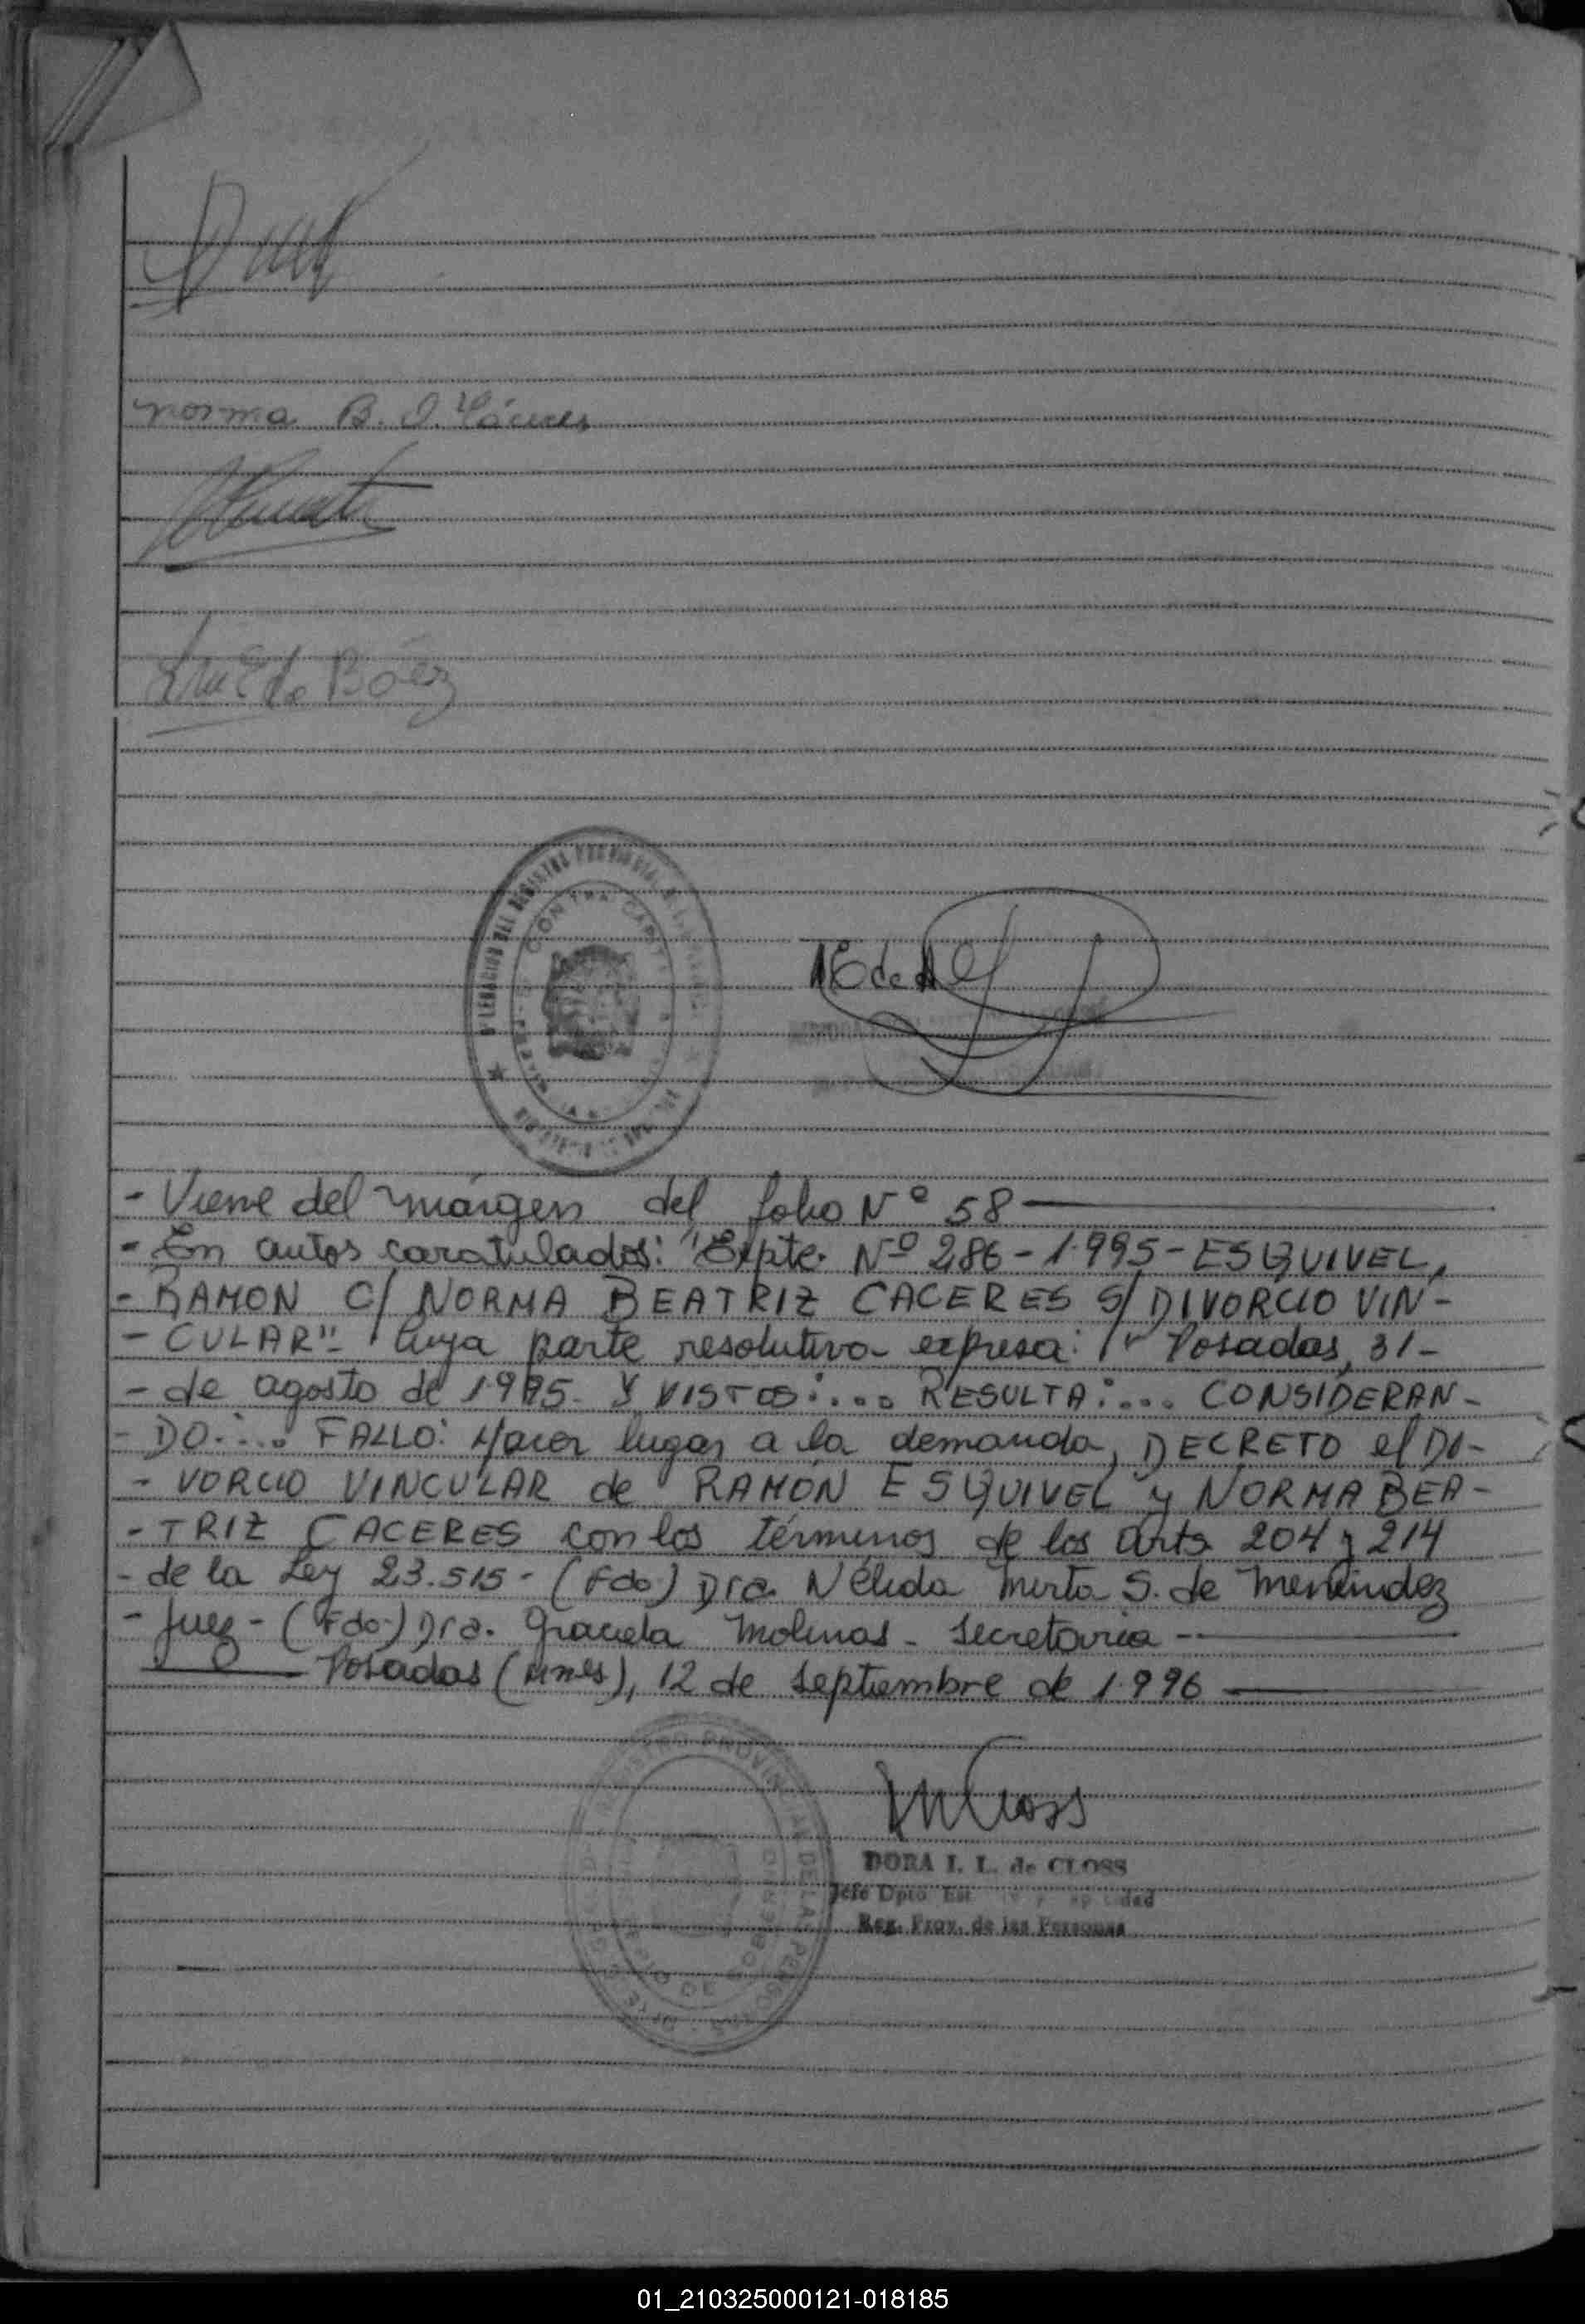 norma B. I. Cáceres
Báez
- Viene del márgen del folio Nº 58
- En autos caratulados: "Expte. Nº 286 - 1.995 - ESQUIVEL,
- RAMON C/ NORMA BEATRIZ CACERES S/ DIVORCIO VIN-
- CULAR"- cuya parte resolutiva expresa: "Posadas, 31-
- de agosto de 1.995. Y VISTOS:... RESULTA:... CONSIDERAN-
- DO:... FALLO: Hacer lugar a la demanda, DECRETO el DI-
- VORCIO VINCULAR de RAMÓN ESQUIVEL y NORMA BEA-
- TRIZ CACERES con los términos de los arts. 204 y 214
- de la Ley 23.515 - (Fdo) Dra. Nélida Mirta S. de Menéndez
- Juez - (Fdo) Dra. Graciela Molinas - Secretaria -
Posadas (Mnes), 12 de Septiembre de 1.996
DORA I. L. de CLOSS
Jefe Dpto
Reg. Prov. de las Personas
01_210325000121-018185